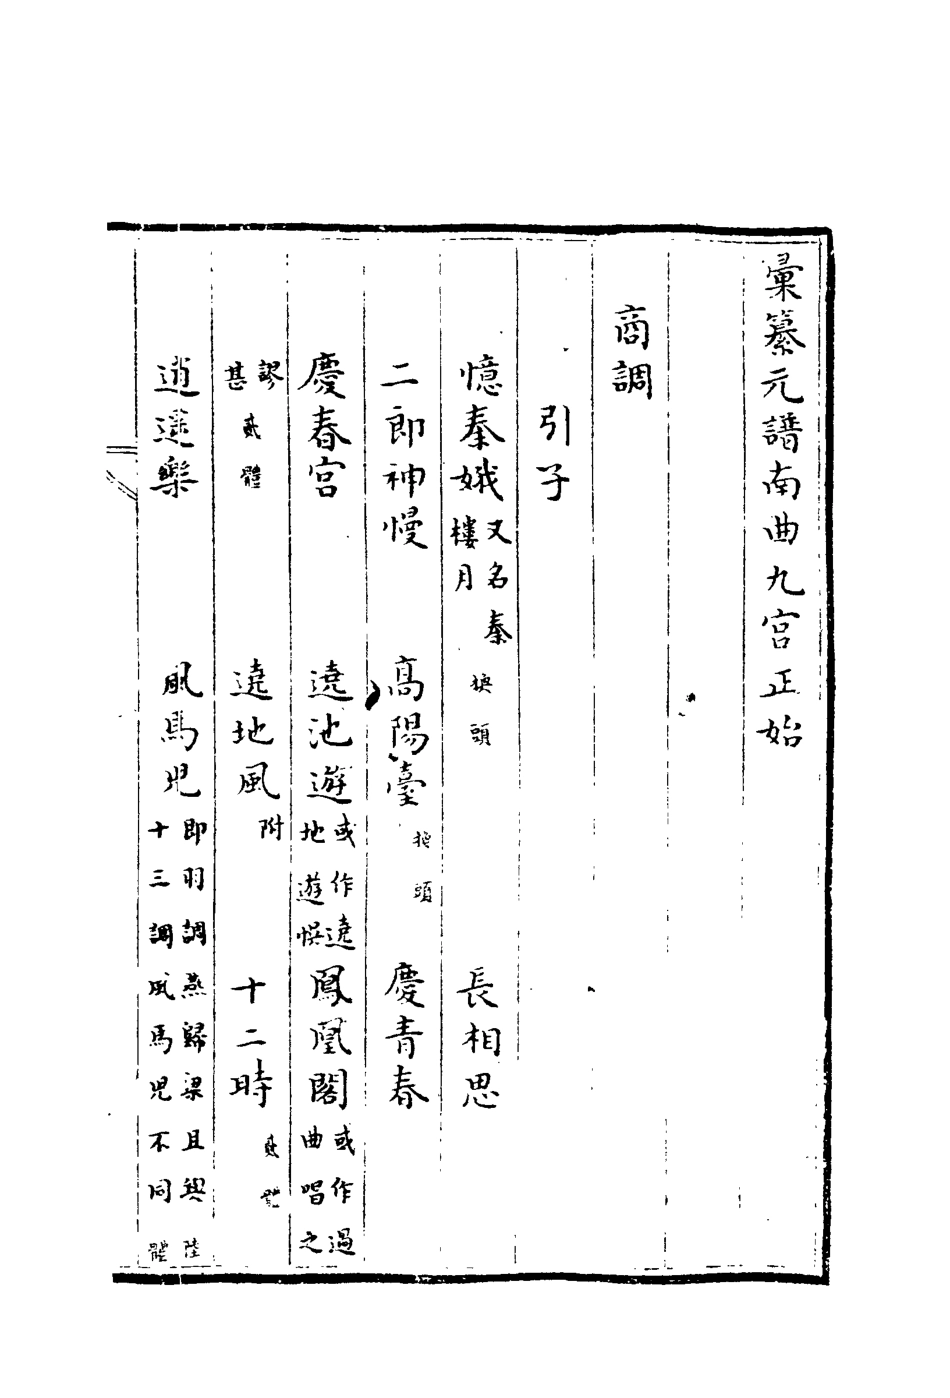 彙纂元譜南曲九宮正始
商調
引子
憶秦娥又名秦樓月 換頭 長相思
二郎神慢 高陽臺 換頭 慶青春
慶春宮 遶池遊或作遶地遊悞 鳳凰閣或作過曲唱之
謬甚 貳體 遶地風附 十二時 貳體
逍遥樂 風馬児即羽調燕歸梁且與十三調風馬児不同 陸體